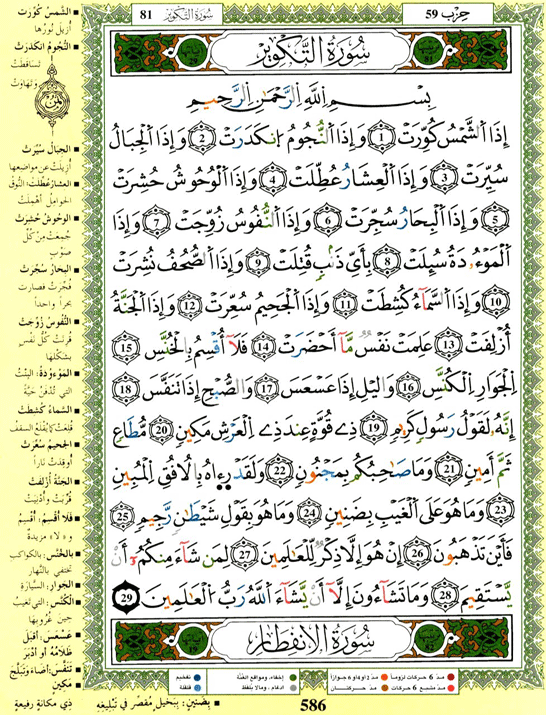 حِزْب 59
سُورَةُ التَّكْوِيرِ 81
سُورَةُ التَّكْوِيرِ
بِسْمِ اِللَّهِ اِلرَّحْمَٰنِ اِلرَّحِيمِ
إِذَا اَلشَّمْسُ كُوِّرَتْ 1 وَإِذَا اَلنُّجُومُ اُنكَدَرَتْ 2 وَإِذَا اَلْجِبَالُ
سُيِّرَتْ 3 وَإِذَا اَلْعِشَارُ عُطِّلَتْ 4 وَإِذَا اَلْوُحُوشُ حُشِرَتْ
5 وَإِذَا اَلْبِحَارُ سُجِّرَتْ 6 وَإِذَا اَلنُّفُوسُ زُوِّجَتْ 7 وَإِذَا
اَلْمَوْءُ,دَةُ سُئِلَتْ 8 بِأَيِّ ذَنۢبٖ قُتِلَتْ 9 وَإِذَا اَلصُّحُفُ نُشِرَتْ
10 وَإِذَا اَلسَّمَآءُ كُشِطَتْ 11 وَإِذَا اَلْجَحِيمُ سُعِّرَتْ 12 وَإِذَا اَلْجَنَّةُ
أُزْلِفَتْ 13 عَلِمَتْ نَفْسٞ مَّآ أَحْضَرَتْ 14 فَلَآ أُقْسِمُ بِالْخُنَّسِ 15
اِلْجَوَارِ اِلْكُنَّسِ 16 وَاليْلِ إِذَا عَسْعَسَ 17 وَالصُّبْحِ إِذَا تَنَفَّسَ 18
إِنَّهُۥ لَقَوْلُ رَسُولٖ كَرِيمٖ 19 ذِے قُوَّةٍ عِندَ ذِے اِلْعَرْشِ مَكِينٖ 20 مُّطَاعٖ
ثَمَّ أَمِينٖ 21 وَمَا صَٰحِبُكُم بِمَجْنُونٖ 22 وَلَقَدْ رءِاهُ بِالُافُقِ اِلْمُبِينِ
23 وَمَا هُوَ عَلَى اَلْغَيْبِ بِضَنِينٖ 24 وَمَا هُوَ بِقَوْلِ شَيْطَٰنٖ رَّجِيمٖ 25
فَأَيْنَ تَذْهَبُونَ 26 إِنْ هُوَ إِلَّا ذِكْرٞ لِّلْعَٰلَمِينَ 27 لِمَن شَآءَ مِنكُمُۥٓ أَنْ
يَّسْتَقِيمَ 28 وَمَا تَشَآءُونَ إِلَّآ أَنْ يَّشَآءَ اَللَّهُ رَبُّ اُلْعَٰلَمِينَ 29
سُورَةُ الِانفِطَارِ
الشَّمْسُ كُوِّرَتْ
أُزِيلَ نُورُهَا
النُّجُومُ انكَدَرَتْ
تَسَاقَطَتْ
وَتَهَاوَتْ
الجِبَالُ سُيِّرَتْ
أُزِيلَتْ عَن مَوَاضِعِهَا
العِشَارُ عُطِّلَتْ: النُّوقُ
الحَوَامِلُ أُهْمِلَتْ
الوُحُوشُ حُشِرَتْ
جُمِعَتْ مِنْ كُلِّ
صَوْبٍ
البِحَارُ سُجِّرَتْ
فُجِّرَتْ فَصَارَتْ
بَحْراً وَاحِداً
النُّفُوسُ زُوِّجَتْ
قُرِنَتْ كُلُّ نَفْسٍ
بِشَكْلِهَا
المَوْءُودَةُ: البِنْتُ
التِي تُدْفَنُ حَيَّةً
السَّمَاءُ كُشِطَتْ
قُلِعَتْ كَمَا يُقْلَعُ السَّقْفُ
الجَحِيمُ سُعِّرَتْ
أُوقِدَتْ نَاراً
الجَنَّةُ أُزْلِفَتْ
قُرِّبَتْ وَأُدْنِيَتْ
فَلَا أُقْسِمُ: أُقْسِمُ
وَ «لا» مَزِيدَةٌ
بِالخُنَّسِ: بِالكَوَاكِبِ
تَخْتَفِي بِالنَّهَارِ
الجَوَارِ: السَّيَّارَةِ
الكُنَّسِ: التِي تَغِيبُ
حِينَ غُرُوبِهَا
عَسْعَسَ: أَقْبَلَ
ظَلَامُهُ أَوْ أَدْبَرَ
تَنَفَّسَ: أَضَاءَ وَتَبَلَّجَ
مَكِينٍ
ذِي مَكَانَةٍ رَفِيعَةٍ
بِضَنِينٍ: بِبَخِيلٍ مُقَصِّرٍ فِي تَبْلِيغِهِ
مدّ 6 حركات لزوماً مدّ 2 أو 4 أو 6 جوازاً إخفاء، ومواقع الغُنَّة تفخيم
مدّ مشبع 6 حركات مدّ حركتان إدغام، ومالا يُلفظ قلقلة
586